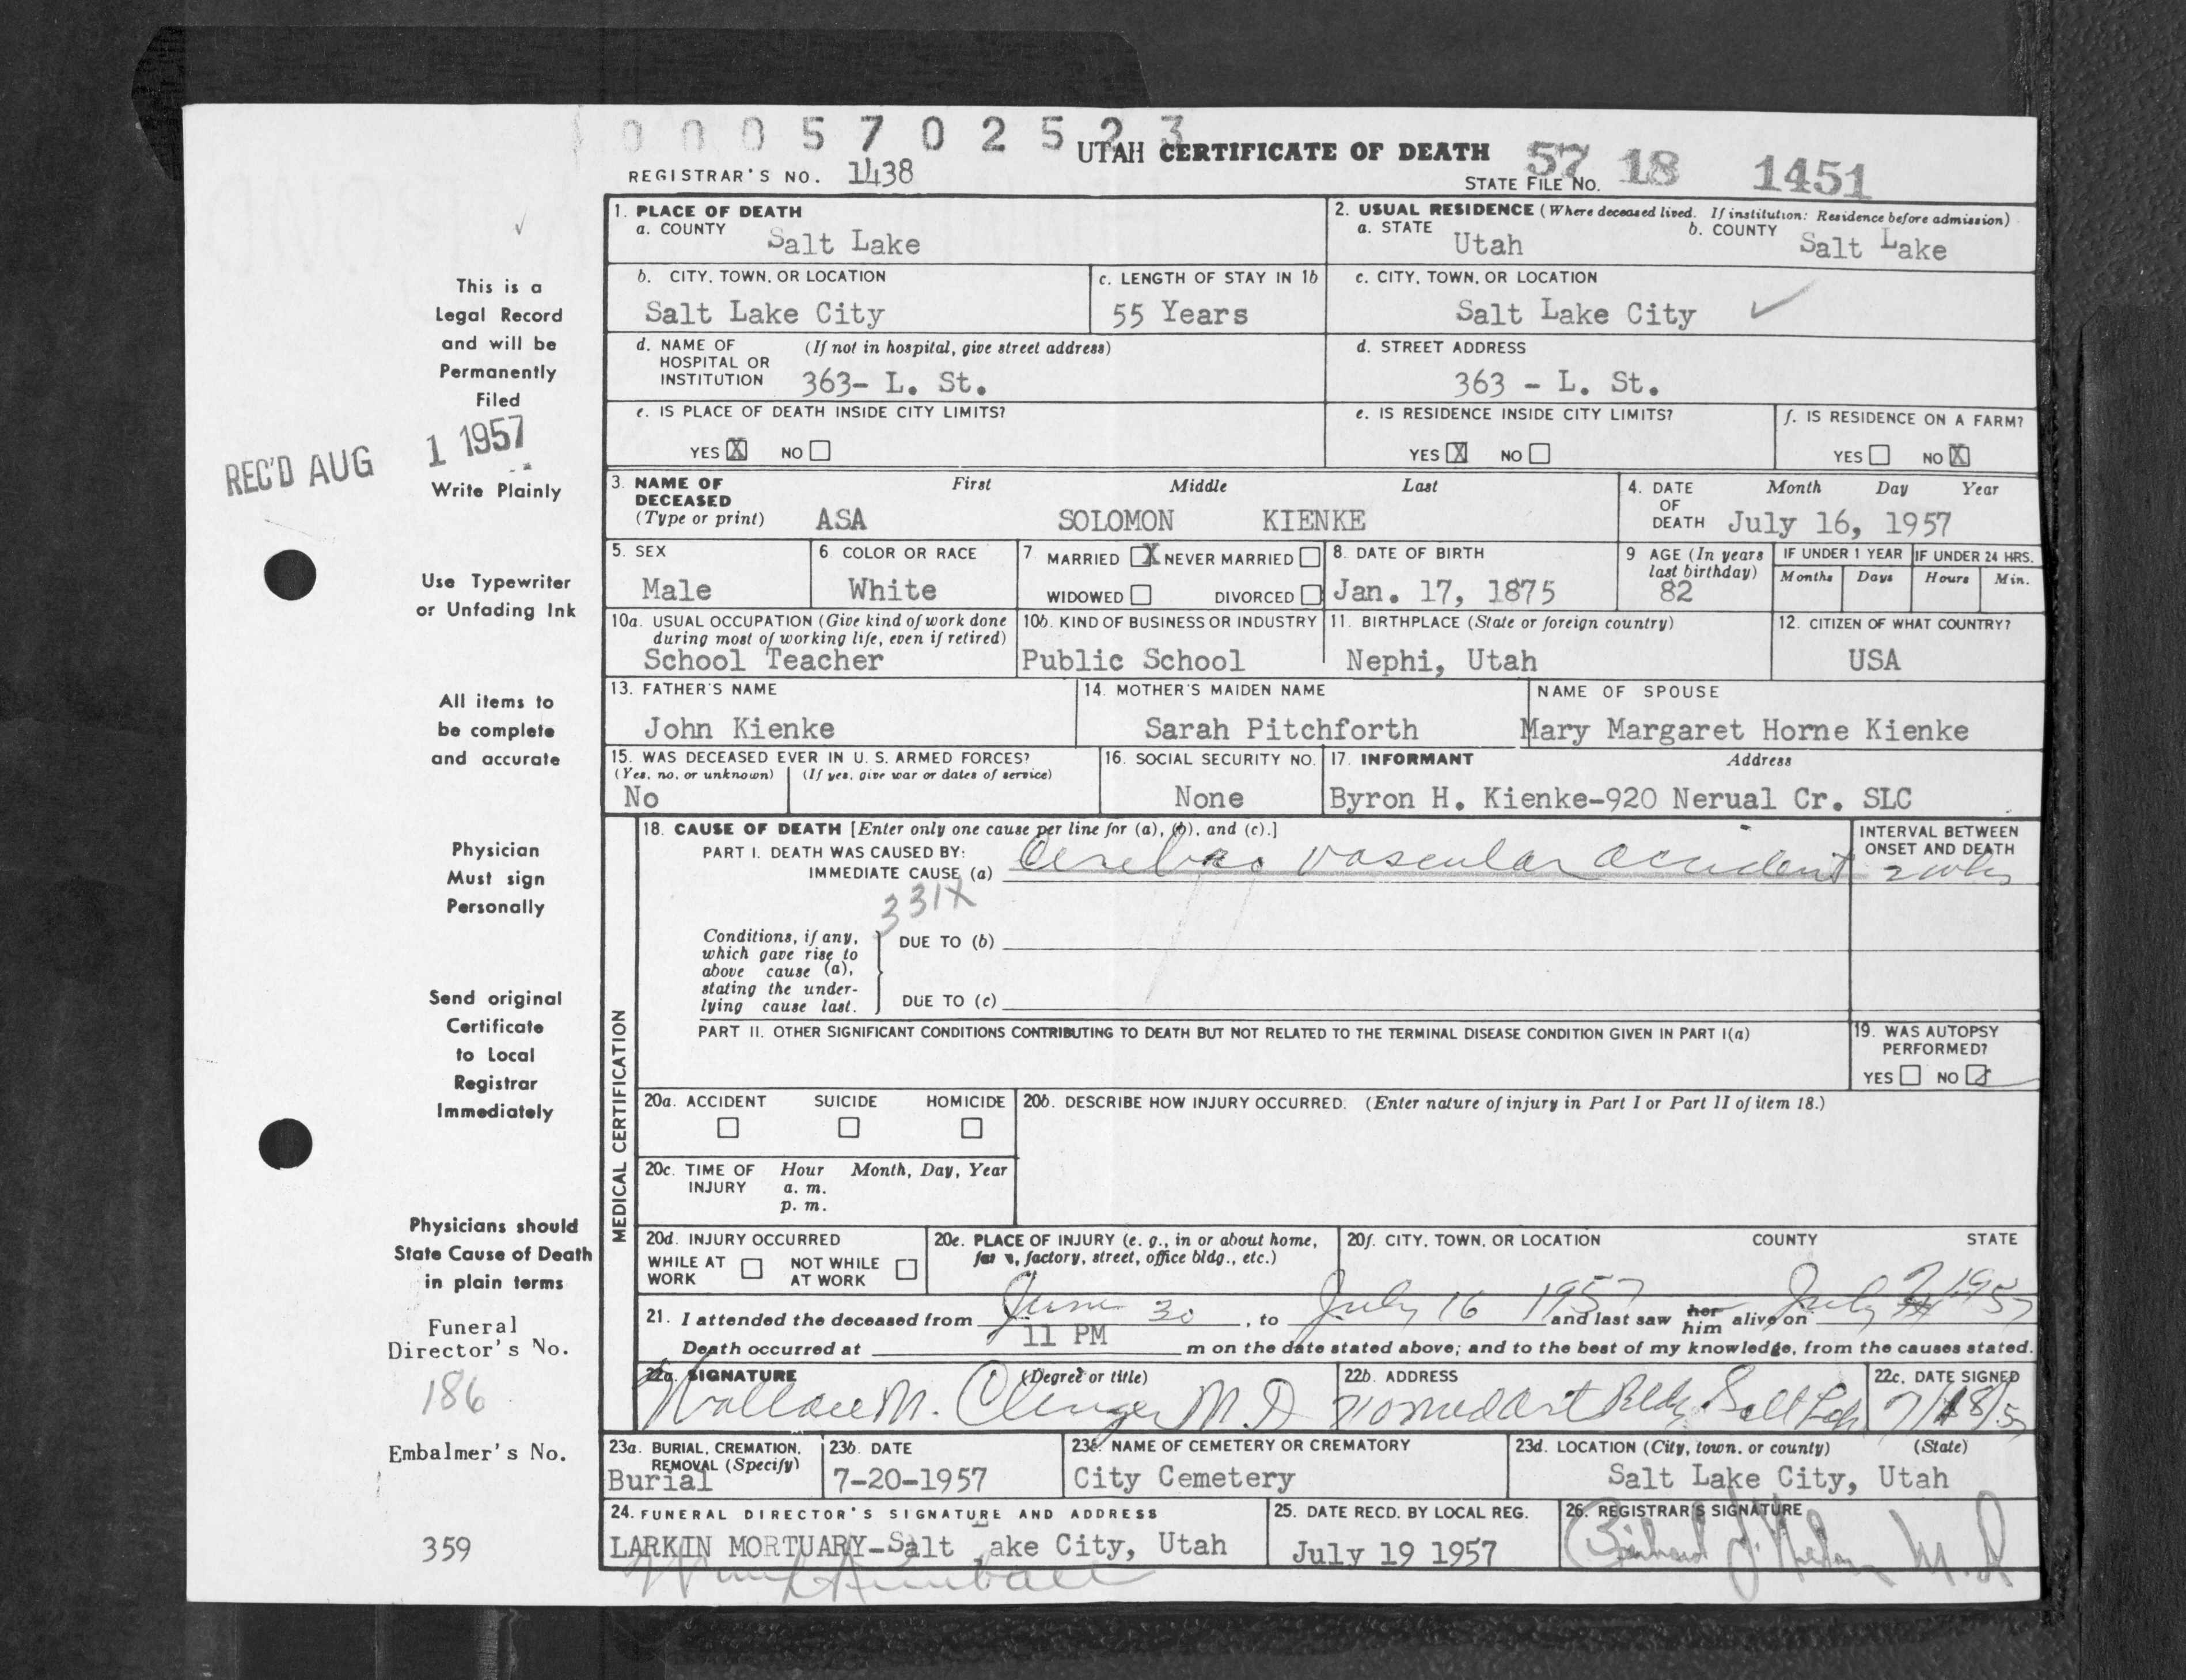 0005702523
UTAH CERTIFICATE OF DEATH
REGISTRAR'S NO. 1438
STATE FILE NO. 57 18 1451
This is a
Legal Record
and will be
Permanently
Filed
REC'D AUG 1 1957
Write Plainly
Use Typewriter
or Unfading Ink
All items to
be complete
and accurate
Physician
Must sign
Personally
Send original
Certificate
to Local
Registrar
Immediately
Physicians should
State Cause of Death
in plain terms
Funeral
Director's No.
186
Embalmer's No.
359
1. PLACE OF DEATH
a. COUNTY Salt Lake
2. USUAL RESIDENCE (Where deceased lived. If institution: Residence before admission)
a. STATE Utah b. COUNTY Salt Lake
b. CITY, TOWN, OR LOCATION
Salt Lake City
c. LENGTH OF STAY IN 1b
55 Years
c. CITY, TOWN, OR LOCATION
Salt Lake City
d. NAME OF (If not in hospital, give street address)
HOSPITAL OR
INSTITUTION 363- L. St.
d. STREET ADDRESS
363 - L. St.
e. IS PLACE OF DEATH INSIDE CITY LIMITS?
YES X NO
e. IS RESIDENCE INSIDE CITY LIMITS?
YES X NO
f. IS RESIDENCE ON A FARM?
YES NO X
3. NAME OF First Middle Last
DECEASED
(Type or print) ASA SOLOMON KIENKE
4. DATE Month Day Year
OF
DEATH July 16, 1957
5. SEX
Male
6 COLOR OR RACE
White
7 MARRIED X NEVER MARRIED
WIDOWED DIVORCED
8. DATE OF BIRTH
Jan. 17, 1875
9 AGE (In years
last birthday)
82
IF UNDER 1 YEAR
Months Days
IF UNDER 24 HRS.
Hours Min.
10a. USUAL OCCUPATION (Give kind of work done
during most of working life, even if retired)
School Teacher
10b. KIND OF BUSINESS OR INDUSTRY
Public School
11. BIRTHPLACE (State or foreign country)
Nephi, Utah
12. CITIZEN OF WHAT COUNTRY?
USA
13. FATHER'S NAME
John Kienke
14. MOTHER'S MAIDEN NAME
Sarah Pitchforth
NAME OF SPOUSE
Mary Margaret Horne Kienke
15. WAS DECEASED EVER IN U. S. ARMED FORCES?
(Yes, no, or unknown) (If yes, give war or dates of service)
No
16. SOCIAL SECURITY NO.
None
17. INFORMANT Address
Byron H. Kienke-920 Nerual Cr. SLC
MEDICAL CERTIFICATION
18. CAUSE OF DEATH [Enter only one cause per line for (a), (b), and (c).]
PART I. DEATH WAS CAUSED BY:
IMMEDIATE CAUSE (a) Cerebro vascular accident
INTERVAL BETWEEN
ONSET AND DEATH
2 wks
331X
Conditions, if any,
which gave rise to
above cause (a),
stating the under-
lying cause last.
DUE TO (b)
DUE TO (c)
PART II. OTHER SIGNIFICANT CONDITIONS CONTRIBUTING TO DEATH BUT NOT RELATED TO THE TERMINAL DISEASE CONDITION GIVEN IN PART I(a)
19. WAS AUTOPSY
PERFORMED?
YES NO
20a. ACCIDENT SUICIDE HOMICIDE
20b. DESCRIBE HOW INJURY OCCURRED. (Enter nature of injury in Part I or Part II of item 18.)
20c. TIME OF Hour Month, Day, Year
INJURY a. m.
p. m.
20d. INJURY OCCURRED
WHILE AT NOT WHILE
WORK AT WORK
20e. PLACE OF INJURY (e. g., in or about home,
factory, street, office bldg., etc.)
20f. CITY, TOWN, OR LOCATION COUNTY STATE
21. I attended the deceased from June 30, to July 16 1957 and last saw her him alive on July 1957
Death occurred at 11 PM m on the date stated above; and to the best of my knowledge, from the causes stated.
22a. SIGNATURE (Degree or title)
Wallace M. Clinger M.D
22b. ADDRESS
Medart Bldg Salt Lake
22c. DATE SIGNED
7/18/57
23a. BURIAL, CREMATION,
REMOVAL (Specify)
Burial
23b. DATE
7-20-1957
23c. NAME OF CEMETERY OR CREMATORY
City Cemetery
23d. LOCATION (City, town, or county) (State)
Salt Lake City, Utah
24. FUNERAL DIRECTOR'S SIGNATURE AND ADDRESS
LARKIN MORTUARY-Salt Lake City, Utah
25. DATE RECD. BY LOCAL REG.
July 19 1957
26. REGISTRAR'S SIGNATURE
M.D